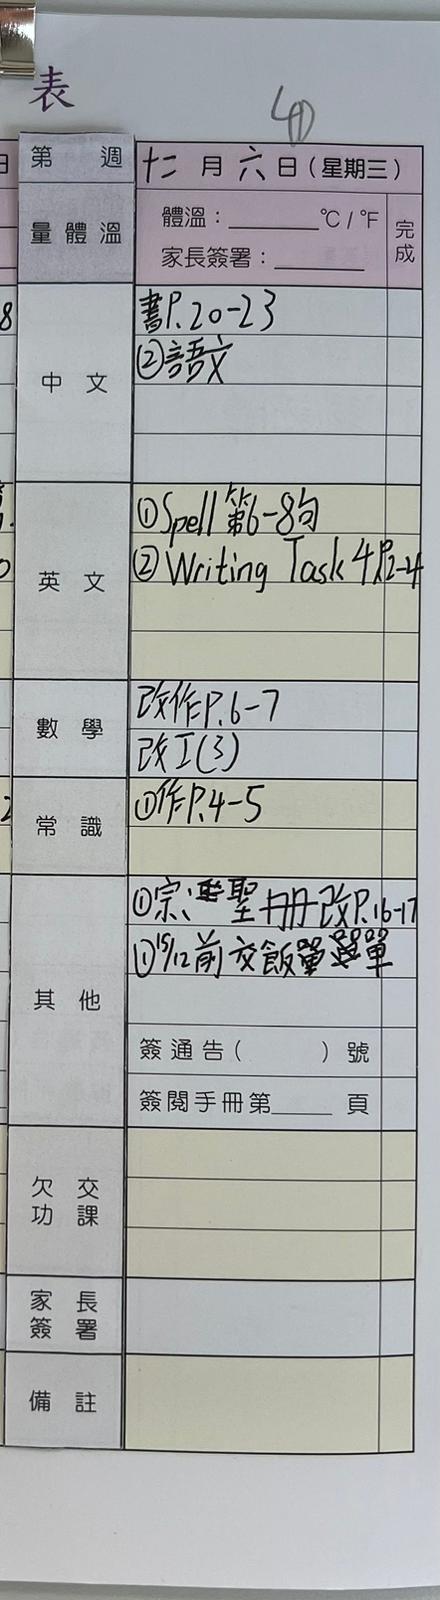 表
4D
第 週 十二月六日(星期三)
量體溫 體溫:________℃/℉ 完成
家長簽署:________
8
中文 書P.20-23
②語文
英文 ①Spell 第6-8句
② Writing Task 4 P.2-4
數學 改作P.6-7
改工(3)
常識 ①作P.4-5
其他 ①宗:聖冊改P.16-17
①15/12前交飯單選單
簽通告( )號
簽閱手冊第____頁
欠交功課
家長簽署
備註